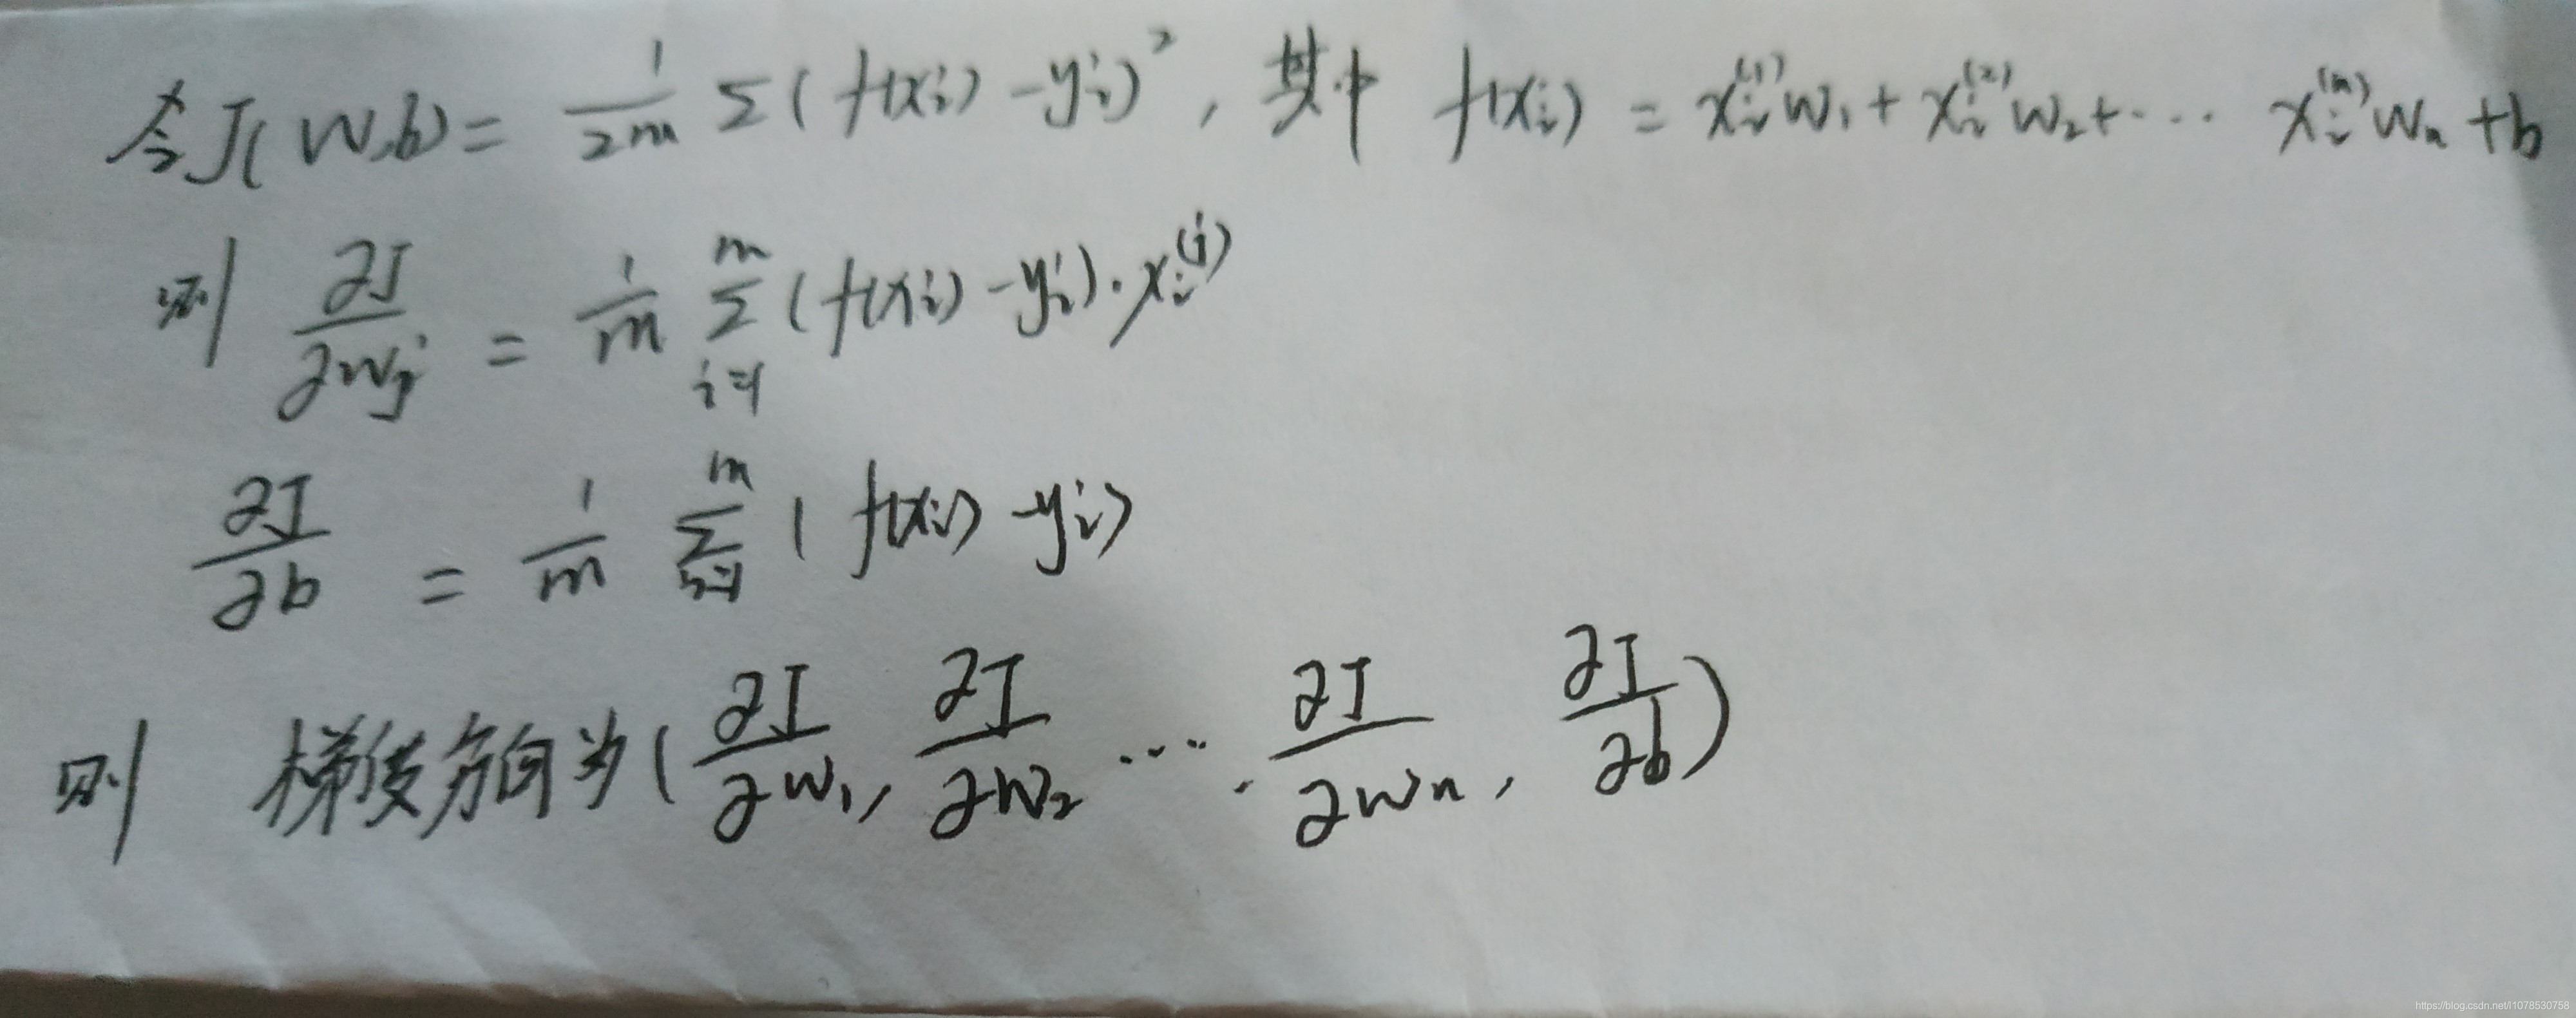 令J(W,b) = \frac{1}{2m} Σ(f(x_i) - y_i)^2, 其中 f(x_i) = x_i^{(1)}w_1 + x_i^{(2)}w_2 + ··· x_i^{(n)}w_n + b
则 \frac{∂J}{∂w_j} = \frac{1}{m} \sum_{i=1}^{m} (f(x_i) - y_i)·x_i^{(j)}
\frac{∂J}{∂b} = \frac{1}{m} \sum_{i=1}^{m} (f(x_i) - y_i)
则 梯度方向为(\frac{∂J}{∂w_1}, \frac{∂J}{∂w_2} ····, \frac{∂J}{∂w_n}, \frac{∂J}{∂b})
https://blog.csdn.net/l1078530758